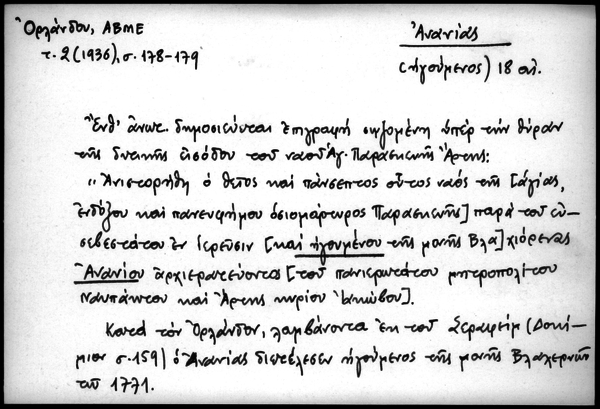 Ὀρλάνδου, ΑΒΜΕ
τ. 2 (1936), σ. 178-179
Ἀνανίας
(ἡγούμενος) 18 αἰ.
Ἔνθ' ἄνωτ. δημοσιεύεται ἐπιγραφή σῳζομένη ὑπέρ τήν θύραν
τῆς δυτικῆς εἰσόδου τοῦ ναοῦ Ἁγ. Παρασκευῆς Ἄρτης:
"Ἀνιστορήθη ὁ θεῖος καί πάνσεπτος οὗτος ναός τῆς [ἁγίας,
ἐνδόξου καί πανευφήμου ὁσιομάρτυρος Παρασκευῆς] παρά τοῦ εὐ-
σεβεστάτου ἐν ἱερεῦσιν [καί ἡγουμένου τῆς μονῆς Βλα]χιόρενας
Ἀνανίου ἀρχιερατεύοντος [τοῦ πανιερωτάτου μητροπολίτου
Ναυπάκτου καί Ἄρτης κυρίου Ἰακώβου].
Κατά τόν Ὀρλάνδον, λαμβάνοντα ἐκ τοῦ Σεραφείμ (Δοκί-
μιον σ. 159) ὁ Ἀνανίας διετέλεσεν ἡγούμενος τῆς μονῆς Βλαχερνῶν
τῷ 1771.